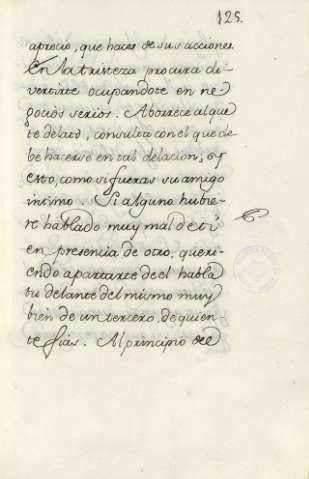 125.
aprecio, que haces de sus acciones.
En la tristeza procura di-
vertirte ocupandote en ne-
gocios serios. Aborrece al que
te delató, consulta con el que de-
be hacerse en tal delacion, oy
esto, como si fueras su amigo
intimo. Si alguno hubie-
re hablado muy mal de ti
en presencia de otro, queri-
endo apartarte de el habla
tu delante del mismo muy
bien de un tercero, de quien
te fias. Al principio del